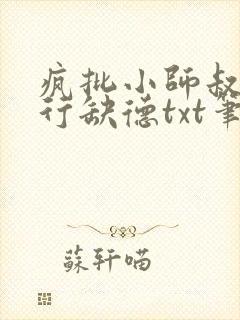 疯批小師叔
行缺德txt筆
蘇軒喵